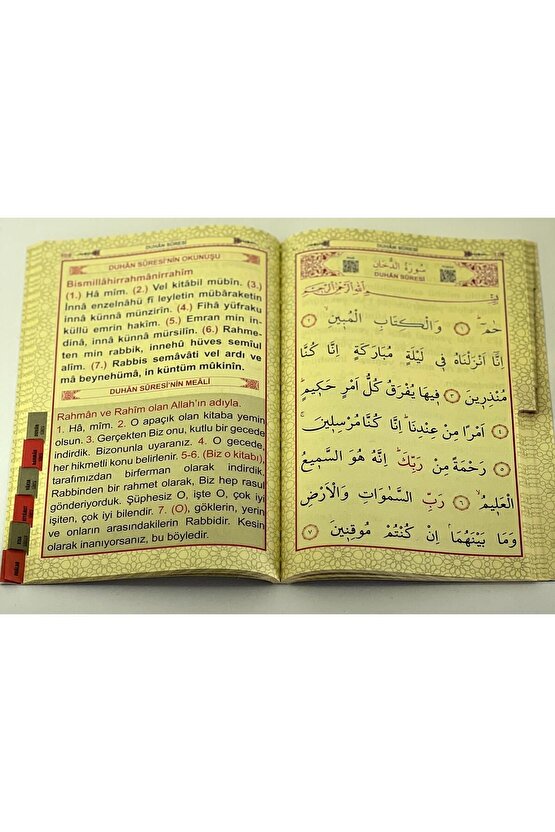 DUHÂN SÛRESİ
DUHÂN SÛRESİ'NİN OKUNUŞU
Bismillâhirrahmânirrahîm
(1.) Hâ mîm. (2.) Vel kitâbil mübîn. (3.)
İnnâ enzelnâhü fî leyletin mübâraketin
innâ künnâ münzirîn. (4.) Fîhâ yüfraku
küllü emrin hakîm. (5.) Emran min in-
dinâ, innâ künnâ mürsilîn. (6.) Rahme-
ten min rabbik, innehû hüves semîul
alîm. (7.) Rabbis semâvâti vel ardı ve
mâ beynehümâ, in küntüm mûkinîn.
DUHÂN SÛRESİ'NİN MEÂLİ
Rahmân ve Rahîm olan Allah'ın adıyla.
1. Hâ, mîm. 2. O apaçık olan kitaba yemin
olsun. 3. Gerçekten Biz onu, kutlu bir gecede
indirdik. Bizonunla uyaranız. 4. O gecede,
her hikmetli konu belirlenir. 5-6. (Biz o kitabı),
tarafımızdan birferman olarak indirdik.
Rabbinden bir rahmet olarak, Biz hep rasul
gönderiyorduk. Şüphesiz O, işte O, çok iyi
işiten, çok iyi bilendir. 7. (O), göklerin, yerin
ve onların arasındakilerin Rabbidir. Kesin
olarak inanıyorsanız, bu böyledir.
DUHÂN SÛRESİ
سُورَةُ الدُّخَانِ
DUHÂN SÛRESİ
بِسْمِ اللّٰهِ الرَّحْمٰنِ الرَّحِيمِ
حٰمٓ ۚ ﴿١﴾ وَالْكِتَابِ الْمُبِينِ ۙ ﴿٢﴾
اِنَّٓا اَنْزَلْنَاهُ فِي لَيْلَةٍ مُبَارَكَةٍ اِنَّا كُنَّا
مُنْذِرِينَ ﴿٣﴾ فِيهَا يُفْرَقُ كُلُّ اَمْرٍ حَكِيمٍ ۙ ﴿٤﴾
اَمْرًا مِنْ عِنْدِنَا ۜ اِنَّا كُنَّا مُرْسِلِينَ ۚ ﴿٥﴾
رَحْمَةً مِنْ رَبِّكَ ۜ اِنَّهُ هُوَ السَّمِيعُ
الْعَلِيمُ ۙ ﴿٦﴾ رَبِّ السَّمٰوَاتِ وَالْاَرْضِ
وَمَا بَيْنَهُمَا ۢ اِنْ كُنْتُمْ مُوقِنِينَ ﴿٧﴾